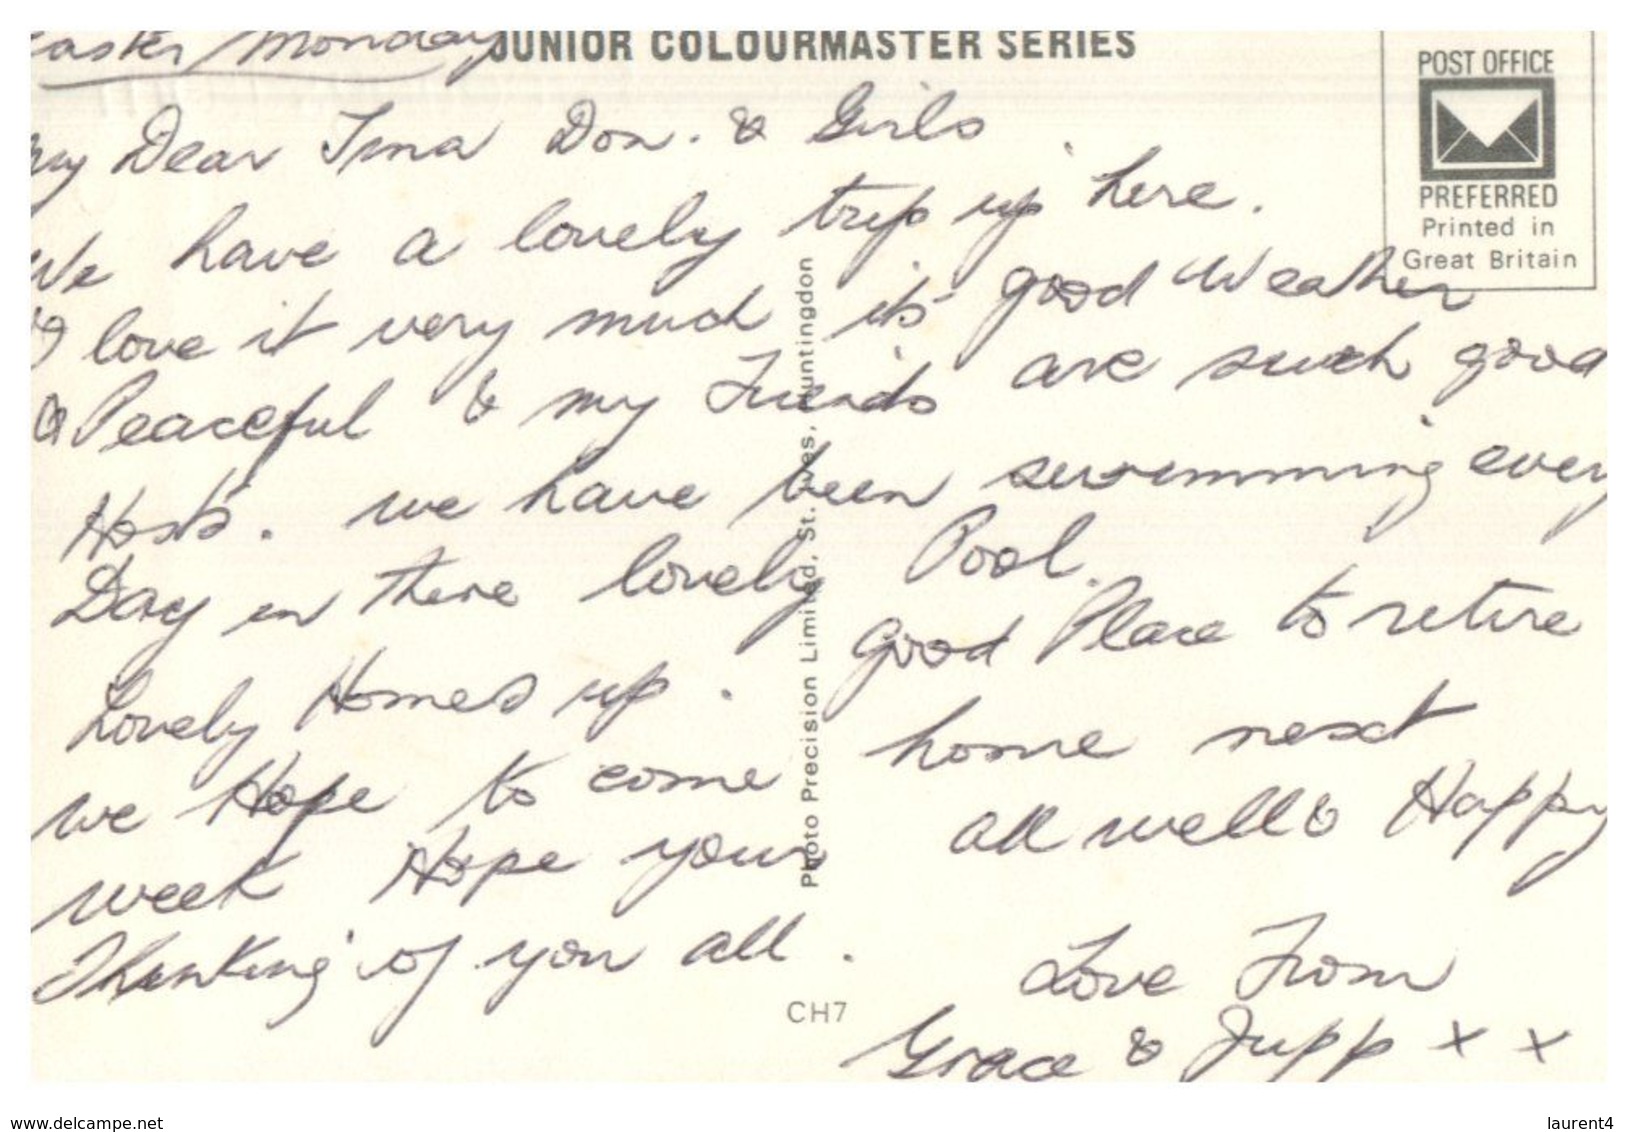 Easter Monday
JUNIOR COLOURMASTER SERIES
POST OFFICE
PREFERRED
Printed in
Great Britain
My Dear Ima Don. & Girls
We have a lovely trip up here.
I love it very much its good Weather
& Peaceful & my Friends are such good
Hosts. we have been swimming every
Day in there lovely Pool.
Lovely Homes up. good Place to retire
we Hope to come home next
week Hope your all well & Happy
Thinking of you all.
Love From
Grace & Jupp x x
Photo Precision Limited, St. Ives, Huntingdon
CH7
www.delcampe.net
laurent4